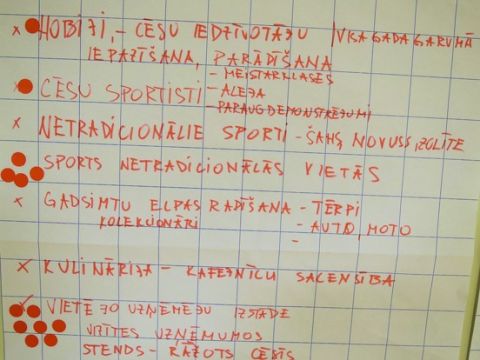 × HOBIJI, - CĒSU IEDZĪVOTĀJU VISA GADA GARUMĀ
IEPAZĪŠANA, PARĀDĪŠANA
- MEISTARKLASES
× CĒSU SPORTISTI - ALEJA
- PARAUGDEMONSTRĒJUMI
× NETRADICIONĀLIE SPORTI - ŠAHS, NOVUSS, ZOLĪTE
SPORTS NETRADICIONĀLĀS VIETĀS
× GADSIMTU ELPAS RADĪŠANA - TĒRPI
KOLEKCIONĀRI - AUTO, MOTO
-
× KULINĀRIJA - KAFEJNĪCU SACENSĪBA
VIETĒJO UZŅĒMĒJU IZSTĀDE
VIZĪTES UZŅĒMUMOS
STENDS - RAŽOTS CĒSĪS